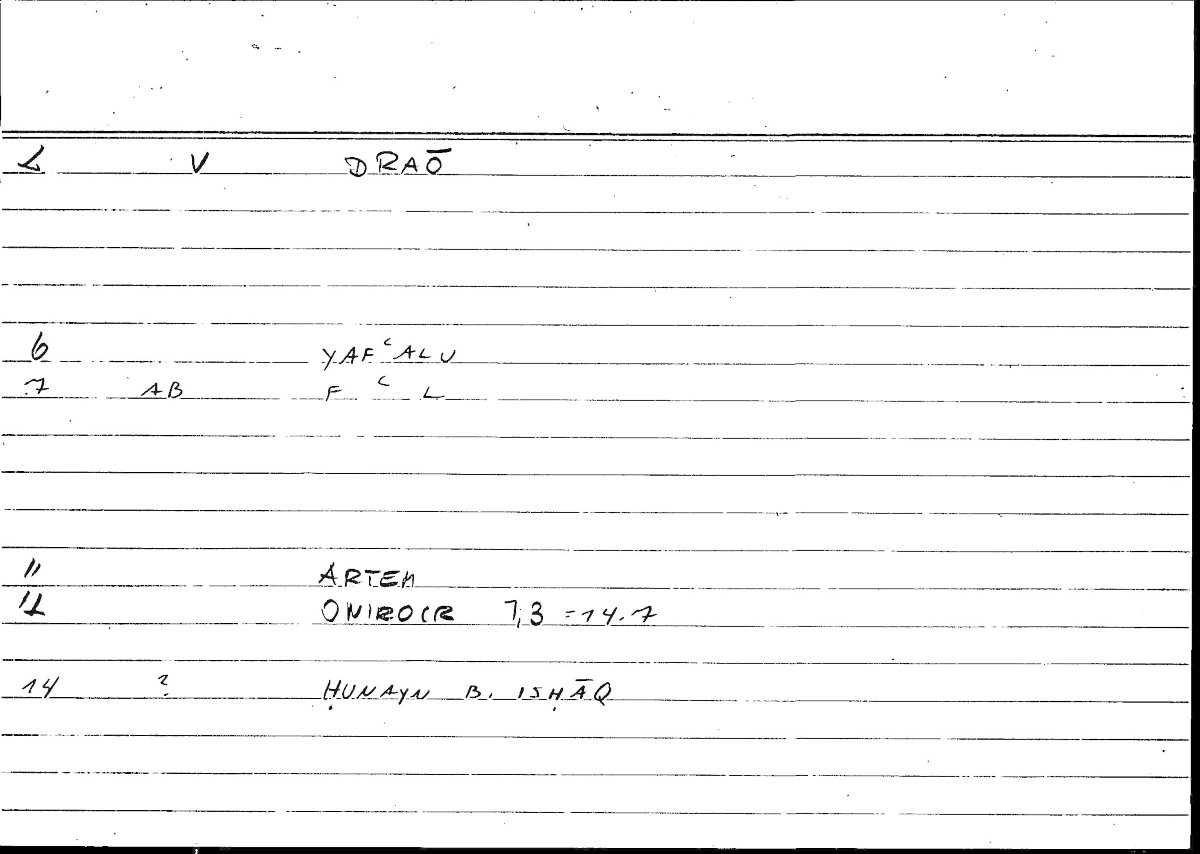 2 V DRAŌ
6 YAFʿALU
7 AB F ʿ L
11 ARTEM
12 ONIROCR 7,3 = 14.7
14 ? ḤUNAYN B. ISḤĀQ